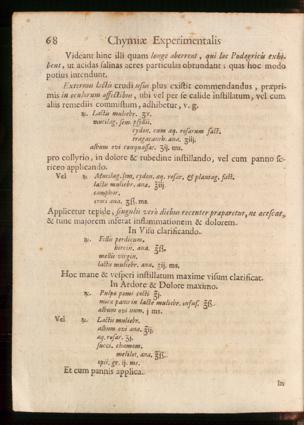 68 Chymiæ Experimentalis
Videant hinc illi quam longe aberrent, qui loc Podagricis exhi-
bent, ut acidas salinas acres particulas obtundant: quas hoc modo
potius intendunt.
Externum lactis crudi usus plus existit commendandus, præpri-
mis in oculorum affectibus, ubi vel per se calide instillatum, vel cum
aliis remediis commistum, adhibetur, v. g.
℞. Lactis muliebr. ʒx.
mucilag. sem. psyllii,
cydon. cum aq. rosarum fact.
tragacanth. ana. ʒiij.
album ovi conquassat. ʒij. ms.
pro collyrio, in dolore & rubedine instillando, vel cum panno se-
riceo applicando.
Vel ℞. Mucilag. sem. cydon. aq. rosar. & plantag. fact.
lactis muliebr. ana. ʒiij.
camphor.
croci ana. ʒß. ms.
Applicetur tepide, singulis verò diebus recenter præparetur, ne acescat,
& tunc majorem inferat inflammationem & dolorem.
In Visu clarificando.
℞. Fellis perdicum,
hircin. ana. ℥ß.
mellis virgin.
lactis muliebr. ana. ʒij. ms.
Hoc mane & vesperi instillatum maxime visum clarificat.
In Ardore & Dolore maximo.
℞. Pulpæ pomi cocti ℥j.
micæ panis in lacte muliebr. infus. ℥ß.
album ovi num. j ms.
Vel ℞. Lactis muliebr.
album ovi ana. ℥ij.
aq. rosar. ℥j.
succi. chamom.
melilot. ana. ℥ß.
opii. gr. ij. ms.
Et cum pannis applica.
In